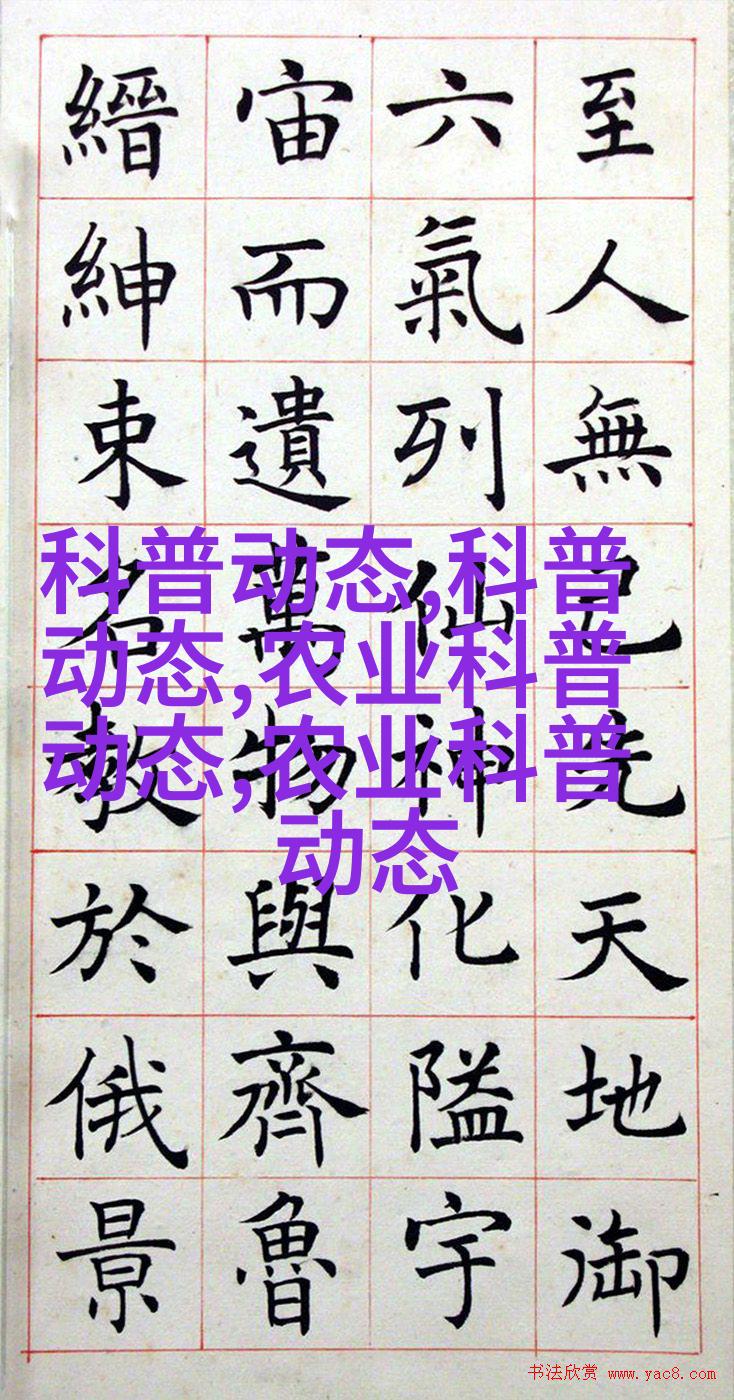 至人無己先天地御
六氣列仙神化隘宇
宙而遺萬物與齊魯
縉紳束名教於俄景
科普动态,科普
动态,农业科普
动态,农业科普
动态
书法欣赏 www.yac8.com